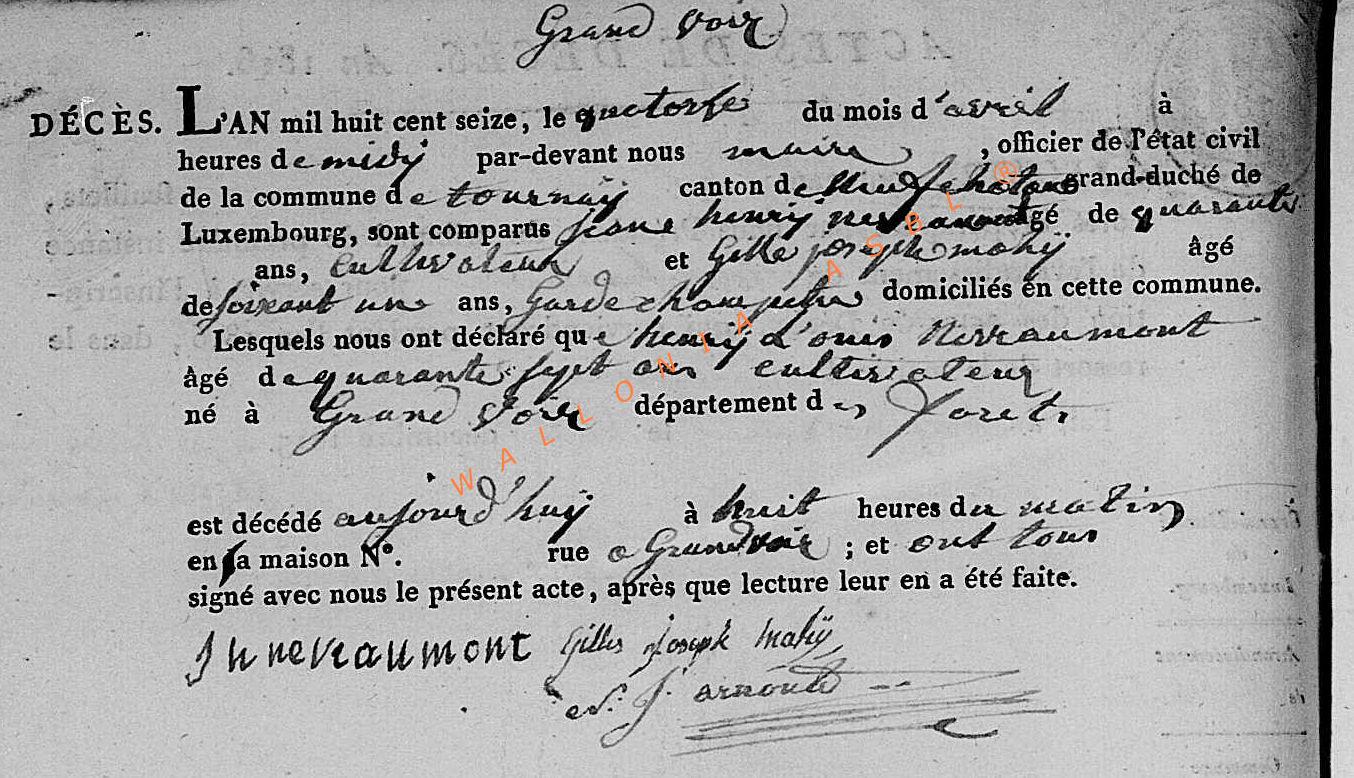 Grand Voir
DÉCÈS. L'AN mil huit cent seize, le quatorse du mois d'avril à
heures de midÿ par-devant nous maire, officier de l'état civil
de la commune de tournaÿ canton de Neufchateau grand-duché de
Luxembourg, sont comparus Jeane henrÿ nevraumont âgé de quarante
ans, Cultivateur et Gille joseph mahÿ âgé
de soixant un ans, Garde champetre domiciliés en cette commune.
Lesquels nous ont déclaré que henrÿ L'ouis Nevraumont
âgé de quarante sept ans cultivateur
né à Grand Voir département des Forets
est décédé aujourd'huÿ à huit heures du matin
en sa maison N°. rue a Grandvoir ; et ont tous
signé avec nous le présent acte, après que lecture leur en a été faite.
J h nevraumont Gilles Joseph Mahÿ
J. arnould
WALLONIA ASBL @